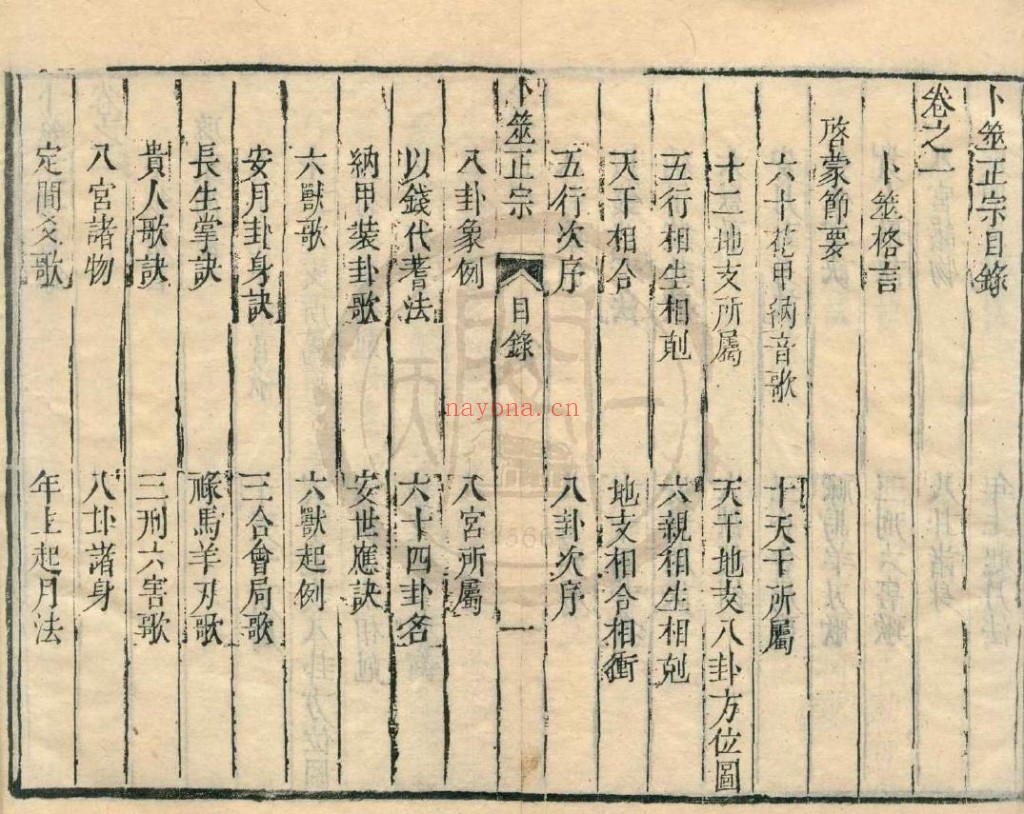 卜筮正宗目錄
卷之一
卜筮格言
啓蒙節要
六十花甲納音歌 十天干所屬
十二地支所屬 天干地支八卦方位圖
五行相生相剋 六親相生相剋
天干相合 地支相合相衝
五行次序 八卦次序
卜筮正宗 目錄 一
八卦象例 八宮所屬
以錢代蓍法 六十四卦名
納甲裝卦歌 安世應訣
六獸歌 六獸起例
安月卦身訣 三合會局歌
長生掌訣 祿馬羊刃歌
貴人歌訣 三刑六害歌
八宮諸物 八卦諸身
定間爻歌 年上起月法
nayona.cn